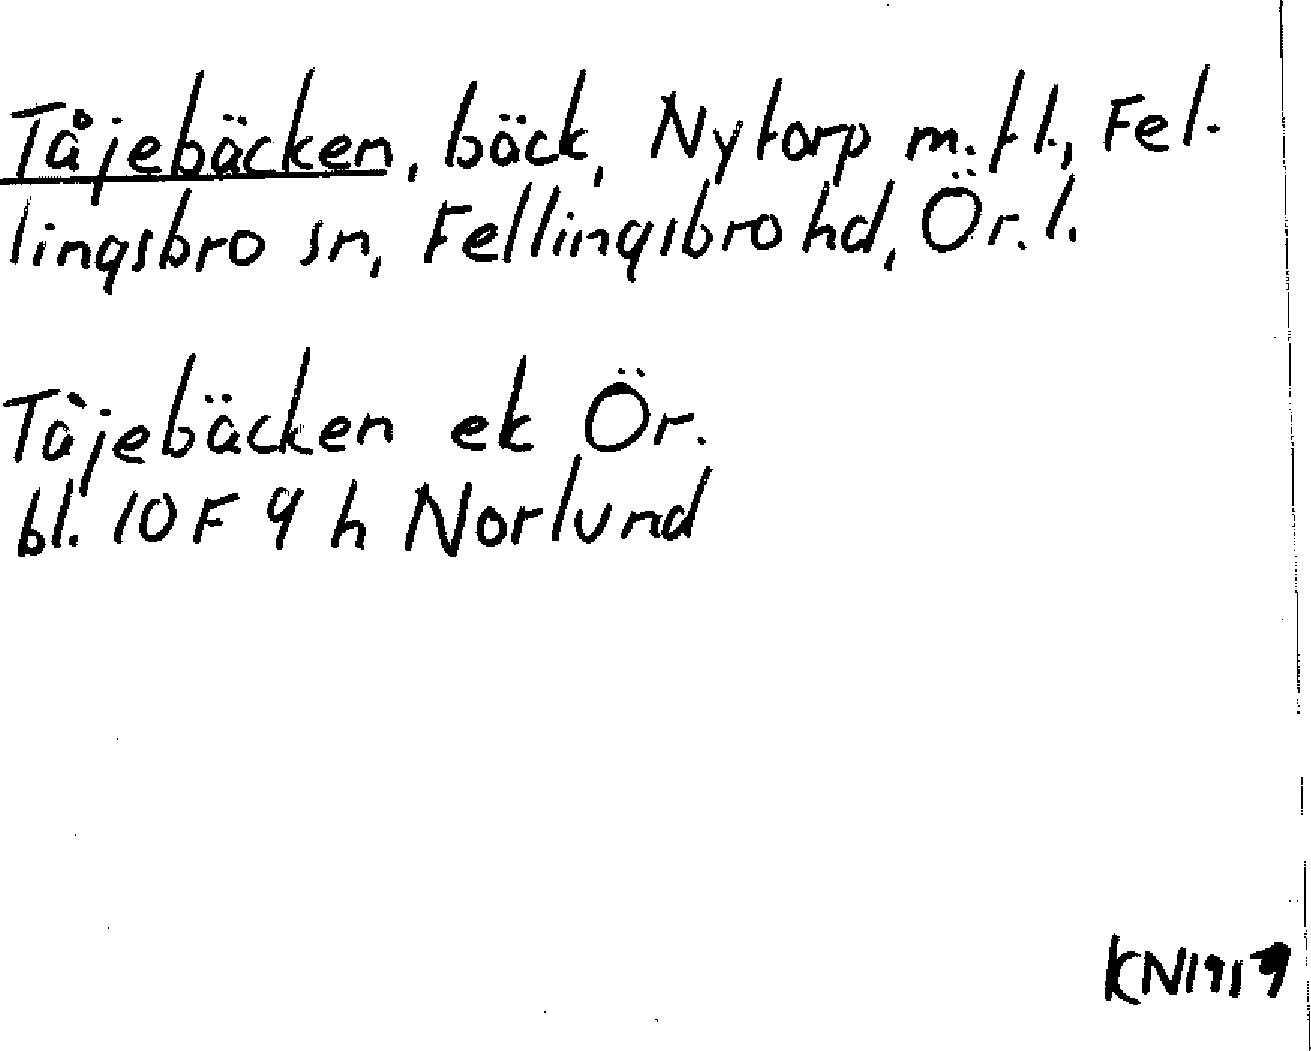 Tåjebäcken, bäck, Nytorp m.fl., Fel-
lingsbro sn, Fellingsbro hd, Ör. l.
Tåjebäcken ek Ör.
bl. 10 F 9 h Norlund